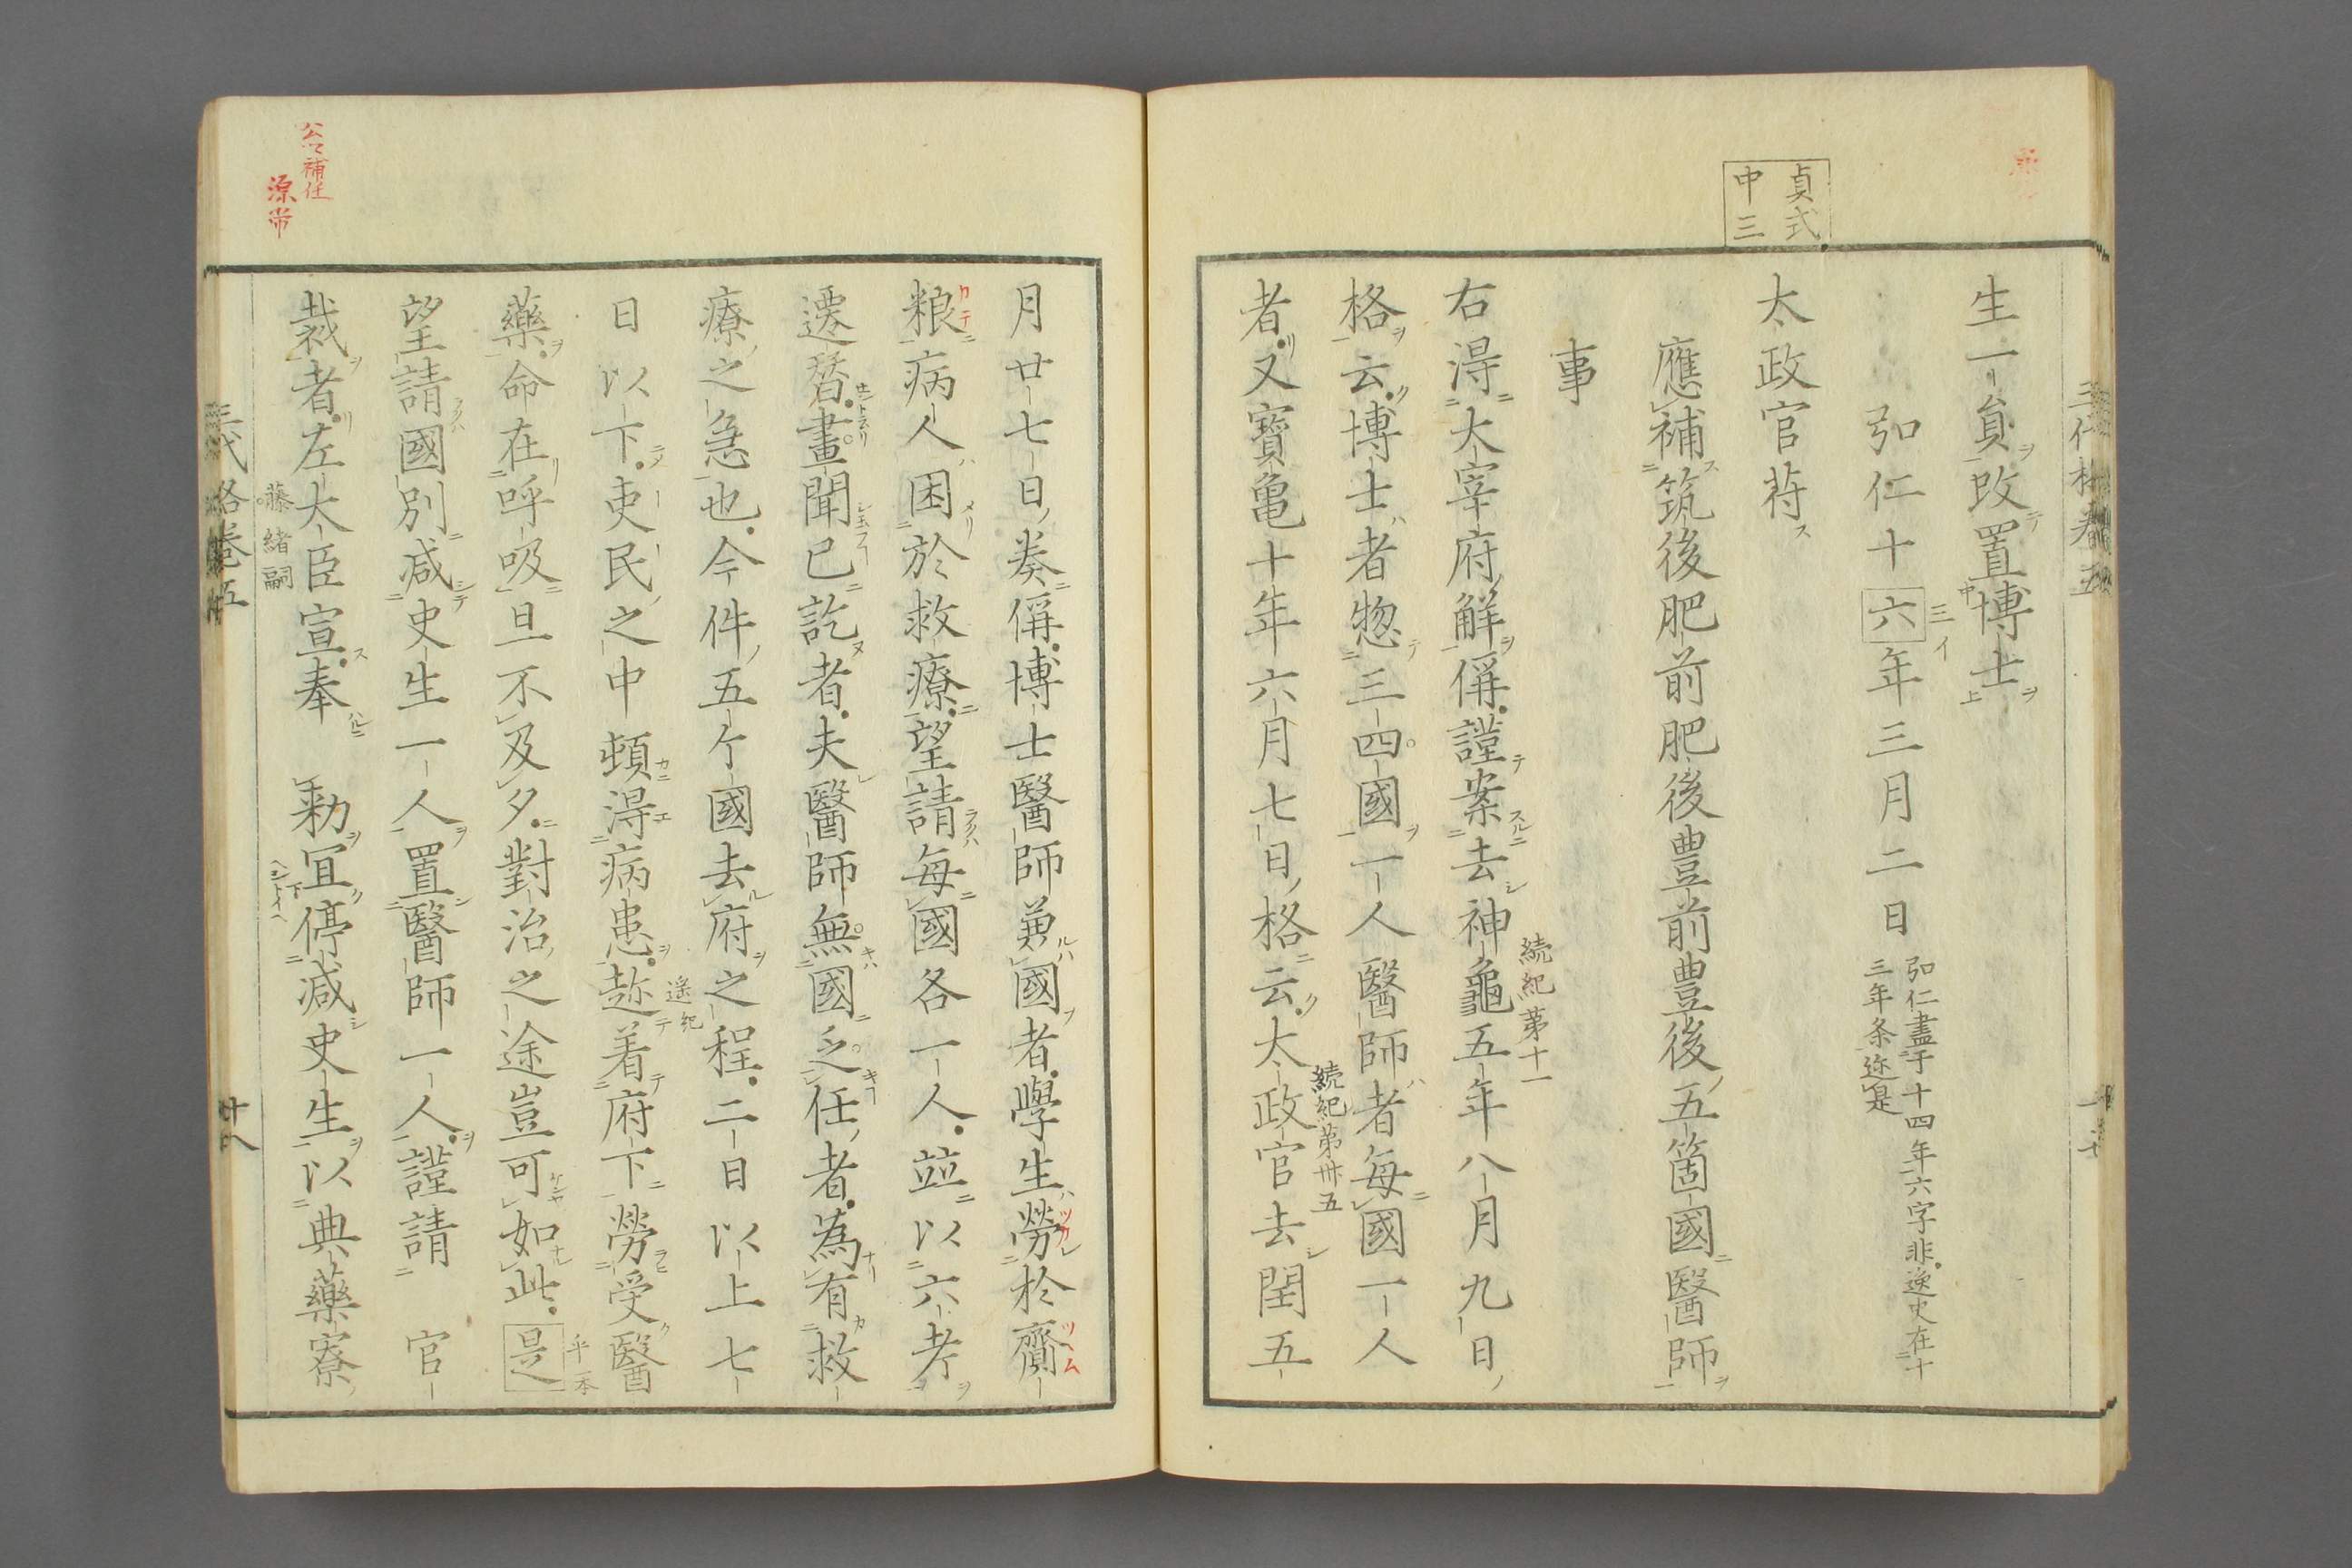 生一員改置博士
弘仁十六年三月二日
三イ
弘仁盡于十四年六字非逸史在十
三年条迩是
貞式
中三
太政官苻
應補筑後肥前肥後豊前豊後五箇國醫師
事
右得大宰府解偁謹案去神龜五年八月九日
続紀第十一
格云博士者惣三四國一人醫師者毎國一人
続紀第卅五
者又寳亀十年六月七日格云太政官去閏五
月廿七日奏偁博士醫師兼國者學生勞於齎
粮病人困於救療望請毎國各一人並以六考
遷替畫聞已訖者夫醫師無國之任者為有救
療之急也今件五个國去府之程二日以上七
日以下吏民之中頓得病患趂着府下勞受醫
遥紀
藥命在呼吸旦不及夕對治之途豈可如此是
乎一本
望請國別減史生一人置醫師一人謹請 官
裁者左大臣宣奉 勅冝停減史生以典藥寮
藤緒嗣
公卿補任
源常
三代格巻五
廿八